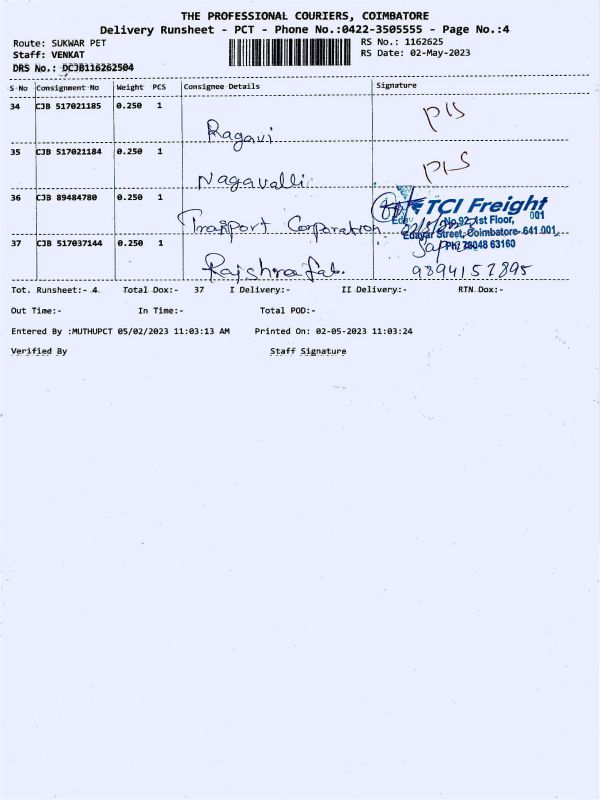 THE PROFESSIONAL COURIERS, COIMBATORE
Delivery Runsheet - PCT - Phone No.:0422-3505555 - Page No.:4
Route: SUKWAR PET
RS No.: 1162625
Staff: VENKAT
RS Date: 02-May-2023
DRS No.: DCJB116262504
S No Consignment No Weight PCS Consignee Details Signature
34 CJB 517021185 0.250 1 Ragavi
35 CJB 517021184 0.250 1 Nagavalli
36 CJB 89484780 0.250 1 Transport Corporation
TCI Freight
No.92, 1st Floor,
Edayar Street, Coimbatore- 641 001.
PH: 78048 63160
37 CJB 517037144 0.250 1 Rajshree fab. 9894152895
Tot. Runsheet:- 4 Total Dox:- 37 I Delivery:- II Delivery:- RTN Dox:-
Out Time:- In Time:- Total POD:-
Entered By :MUTHUPCT 05/02/2023 11:03:13 AM Printed On: 02-05-2023 11:03:24
Verified By Staff Signature